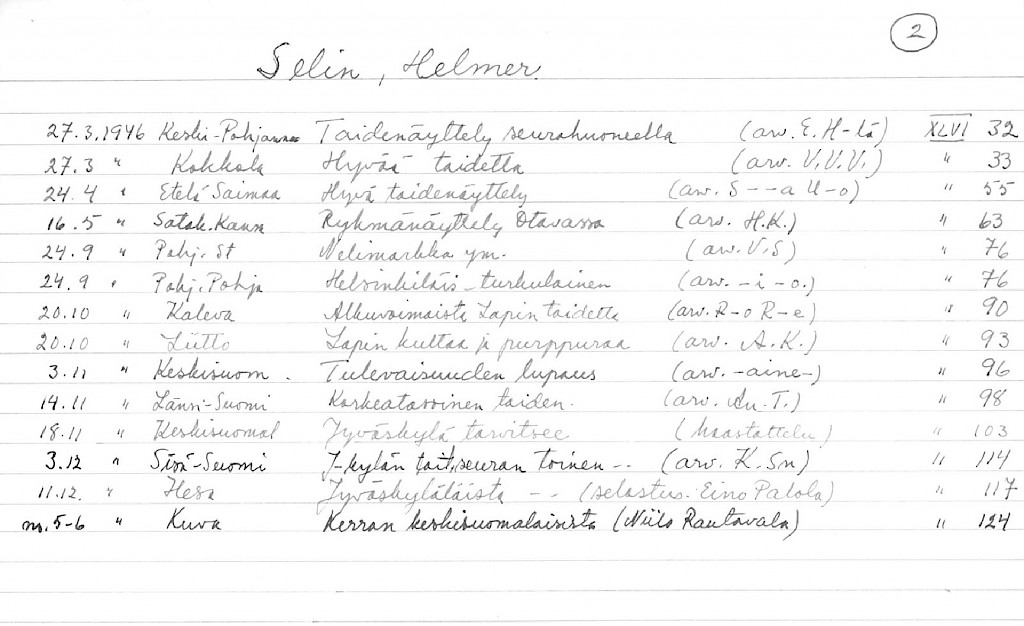 2
Selin, Helmer.
27.3.1946 Keski-Pohjanmaa Taidenäyttely seurahuoneella (arv. E. H-lä) XLVI 32
27.3 " Kokkola Hyvää taidetta (arv. V.V.V.) " 33
24.4 " Etelä Saimaa Hyvä taidenäyttely (arv. S--a U-o) " 55
16.5 " Satak. Kansa Ryhmänäyttely Otavassa (arv. H.K.) " 63
24.9 " Pohj. St Nelimarkka ym. (arv. V.S) " 76
24.9 " Pohj. Pohja Helsinkiläis-turkulainen (arv. -i-o.) " 76
20.10 " Kaleva Alkuvoimaista Lapin taidetta (arv. R-o R-e) " 90
20.10 " Liitto Lapin kultaa ja purppuraa (arv. A.K.) " 93
3.11 " Keskisuom. Tulevaisuuden lupaus (arv. -aine-) " 96
14.11 " Länsi-Suomi Korkeatasoinen taiden. (arv. Au.T.) " 98
18.11 " Keskisuomal Jyväskylä tarvitsee (haastattelu) " 103
3.12 " Sisä-Suomi J-kylän tait.seuran toinen -- (arv. K. Sn) " 114
11.12. " Hesa Jyväskyläläistä -- (selostus. Eino Palola) " 117
no. 5-6 " Kuva Kerran keskisuomalaisista (Niilo Rautavala) " 124